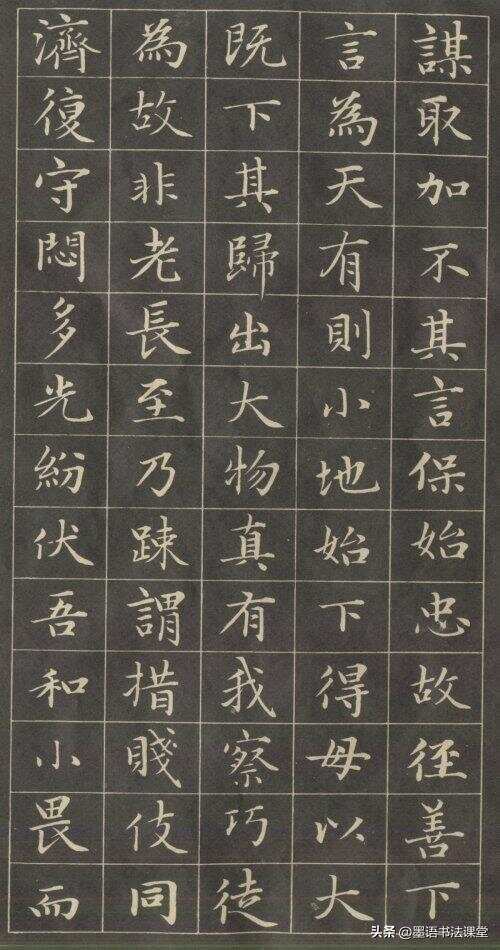 謀取加不其言保始忠故徑善下
言為天有則小地始下得毋以大
既下其歸出大物真有我察巧徒
為故非老長至乃踈謂措賤伎同
濟復守悶多光紛伏吾和小畏而
头条@墨语书法课堂